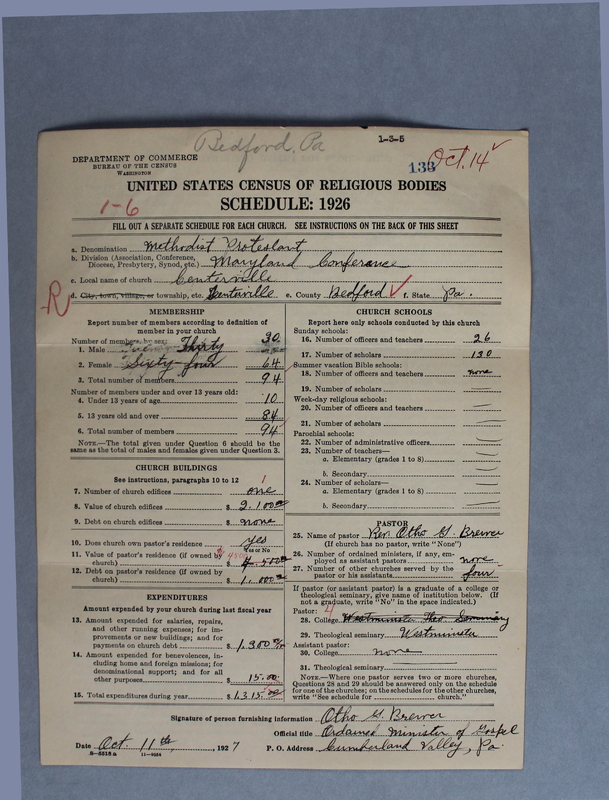 Bedford, Pa
1-3-5
DEPARTMENT OF COMMERCE
BUREAU OF THE CENSUS
WASHINGTON
133 Oct. 14 ✓
UNITED STATES CENSUS OF RELIGIOUS BODIES
1-6
SCHEDULE: 1926
FILL OUT A SEPARATE SCHEDULE FOR EACH CHURCH. SEE INSTRUCTIONS ON THE BACK OF THIS SHEET
a. Denomination Methodist Protestant
b. Division (Association, Conference, Diocese, Presbytery, Synod, etc.) Maryland Conference
c. Local name of church Centerville
R
d. City, town, village, or township, etc. Centerville e. County Bedford ✓ f. State Pa.
MEMBERSHIP
Report number of members according to definition of member in your church
Number of members, by sex:
1. Male Thirty 30
2. Female Sixty-four 64
3. Total number of members 94
Number of members under and over 13 years old:
4. Under 13 years of age 10
5. 13 years old and over 84
6. Total number of members 94
NOTE.—The total given under Question 6 should be the same as the total of males and females given under Question 3.
CHURCH BUILDINGS
See instructions, paragraphs 10 to 12
7. Number of church edifices one 1
8. Value of church edifices $ 2,100
9. Debt on church edifices $ none
10. Does church own pastor's residence yes
Yes or No
11. Value of pastor's residence (if owned by church) $ 4,500
12. Debt on pastor's residence (if owned by church) $ 1,000
EXPENDITURES
Amount expended by your church during last fiscal year
13. Amount expended for salaries, repairs, and other running expenses; for improvements or new buildings; and for payments on church debt $ 1,300
14. Amount expended for benevolences, including home and foreign missions; for denominational support; and for all other purposes $ 15.00
15. Total expenditures during year $ 1,315.00
CHURCH SCHOOLS
Report here only schools conducted by this church
Sunday schools:
16. Number of officers and teachers 26
17. Number of scholars 130
Summer vacation Bible schools:
18. Number of officers and teachers none
19. Number of scholars
Week-day religious schools:
20. Number of officers and teachers
21. Number of scholars
Parochial schools:
22. Number of administrative officers
23. Number of teachers—
a. Elementary (grades 1 to 8)
b. Secondary
24. Number of scholars—
a. Elementary (grades 1 to 8)
b. Secondary
PASTOR
25. Name of pastor Rev. Otho G. Brewer
(If church has no pastor, write "None")
26. Number of ordained ministers, if any, employed as assistant pastors none
27. Number of other churches served by the pastor or his assistants four
If pastor (or assistant pastor) is a graduate of a college or theological seminary, give name of institution below. (If not a graduate, write "No" in the space indicated.)
Pastor: 4
28. College Westminster Theo. Seminary
29. Theological seminary Westminster
Assistant pastor:
30. College none
31. Theological seminary
NOTE.—Where one pastor serves two or more churches, Questions 28 and 29 should be answered only on the schedule for one of the churches; on the schedules for the other churches, write "See schedule for church."
Signature of person furnishing information Otho G. Brewer
Official title Ordained Minister of Gospel
Date Oct. 11th, 1927 P. O. Address Cumberland Valley, Pa.